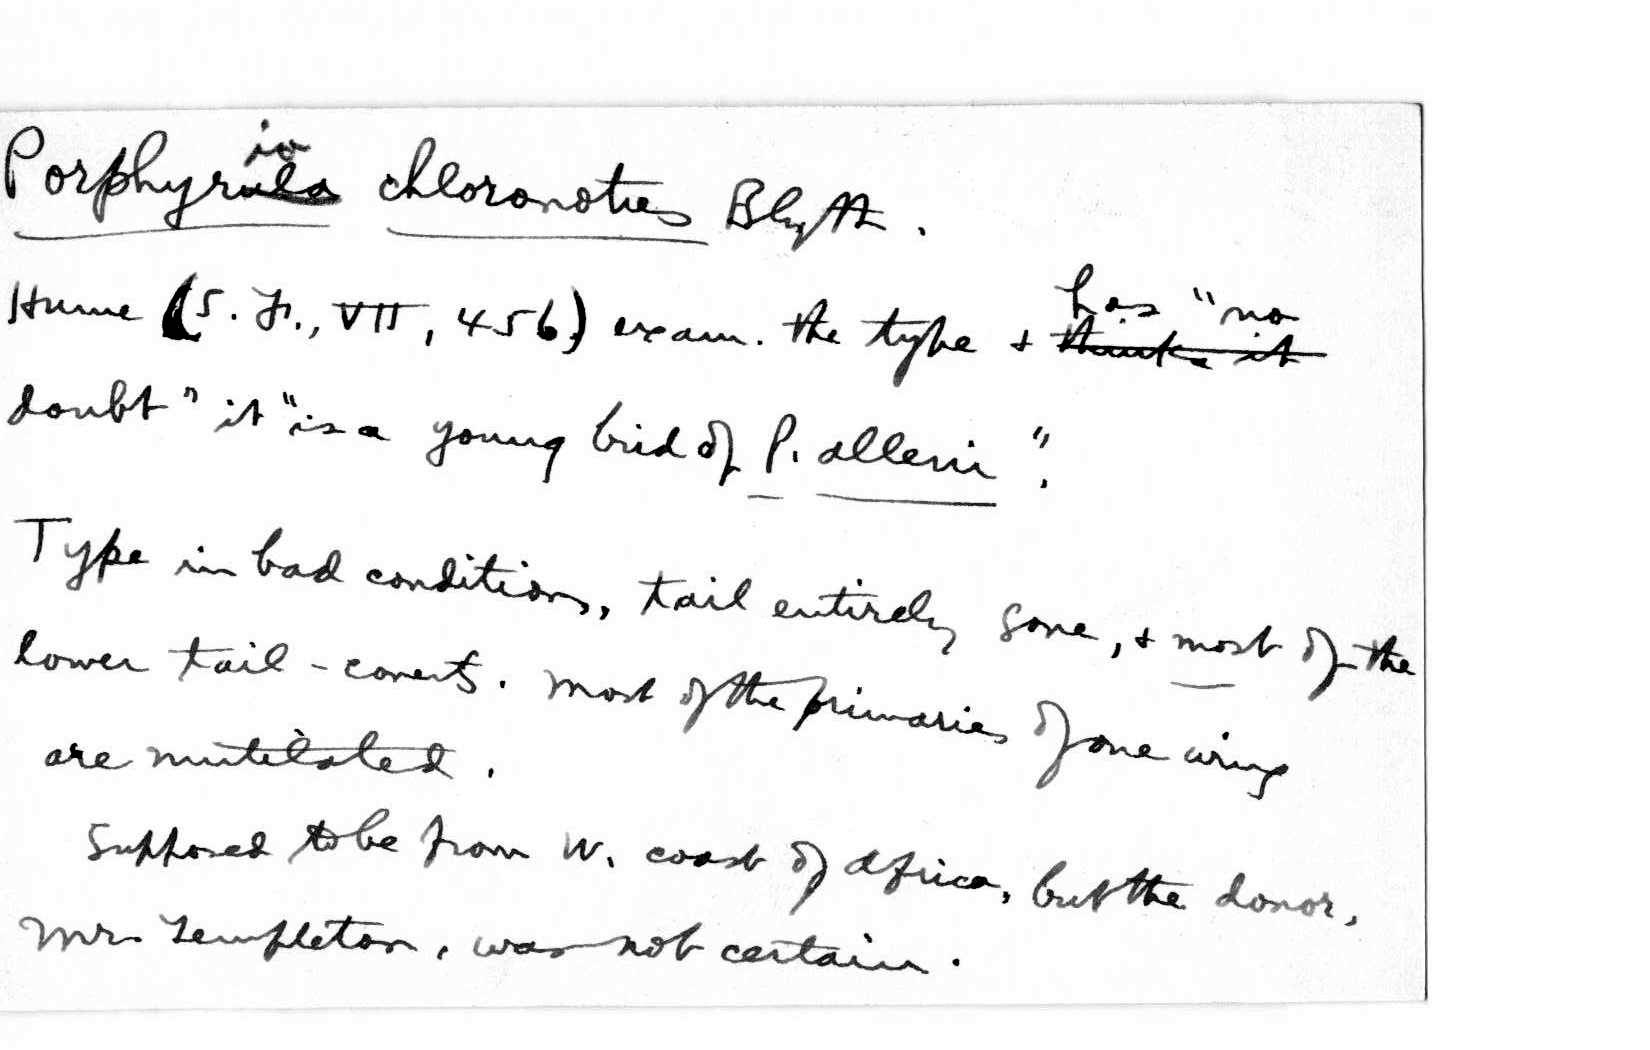 Porphyrio chloronotus Blyth.
Hume (S. F., VII, 456) exam. the type + has "no
doubt" it "is a young bird of P. alleni".
Type in bad condition, tail entirely gone, + most of the
lower tail-coverts. Most of the primaries of one wing
are mutilated.
Supposed to be from W. coast of Africa, but the donor,
Mr. Templeton, was not certain.